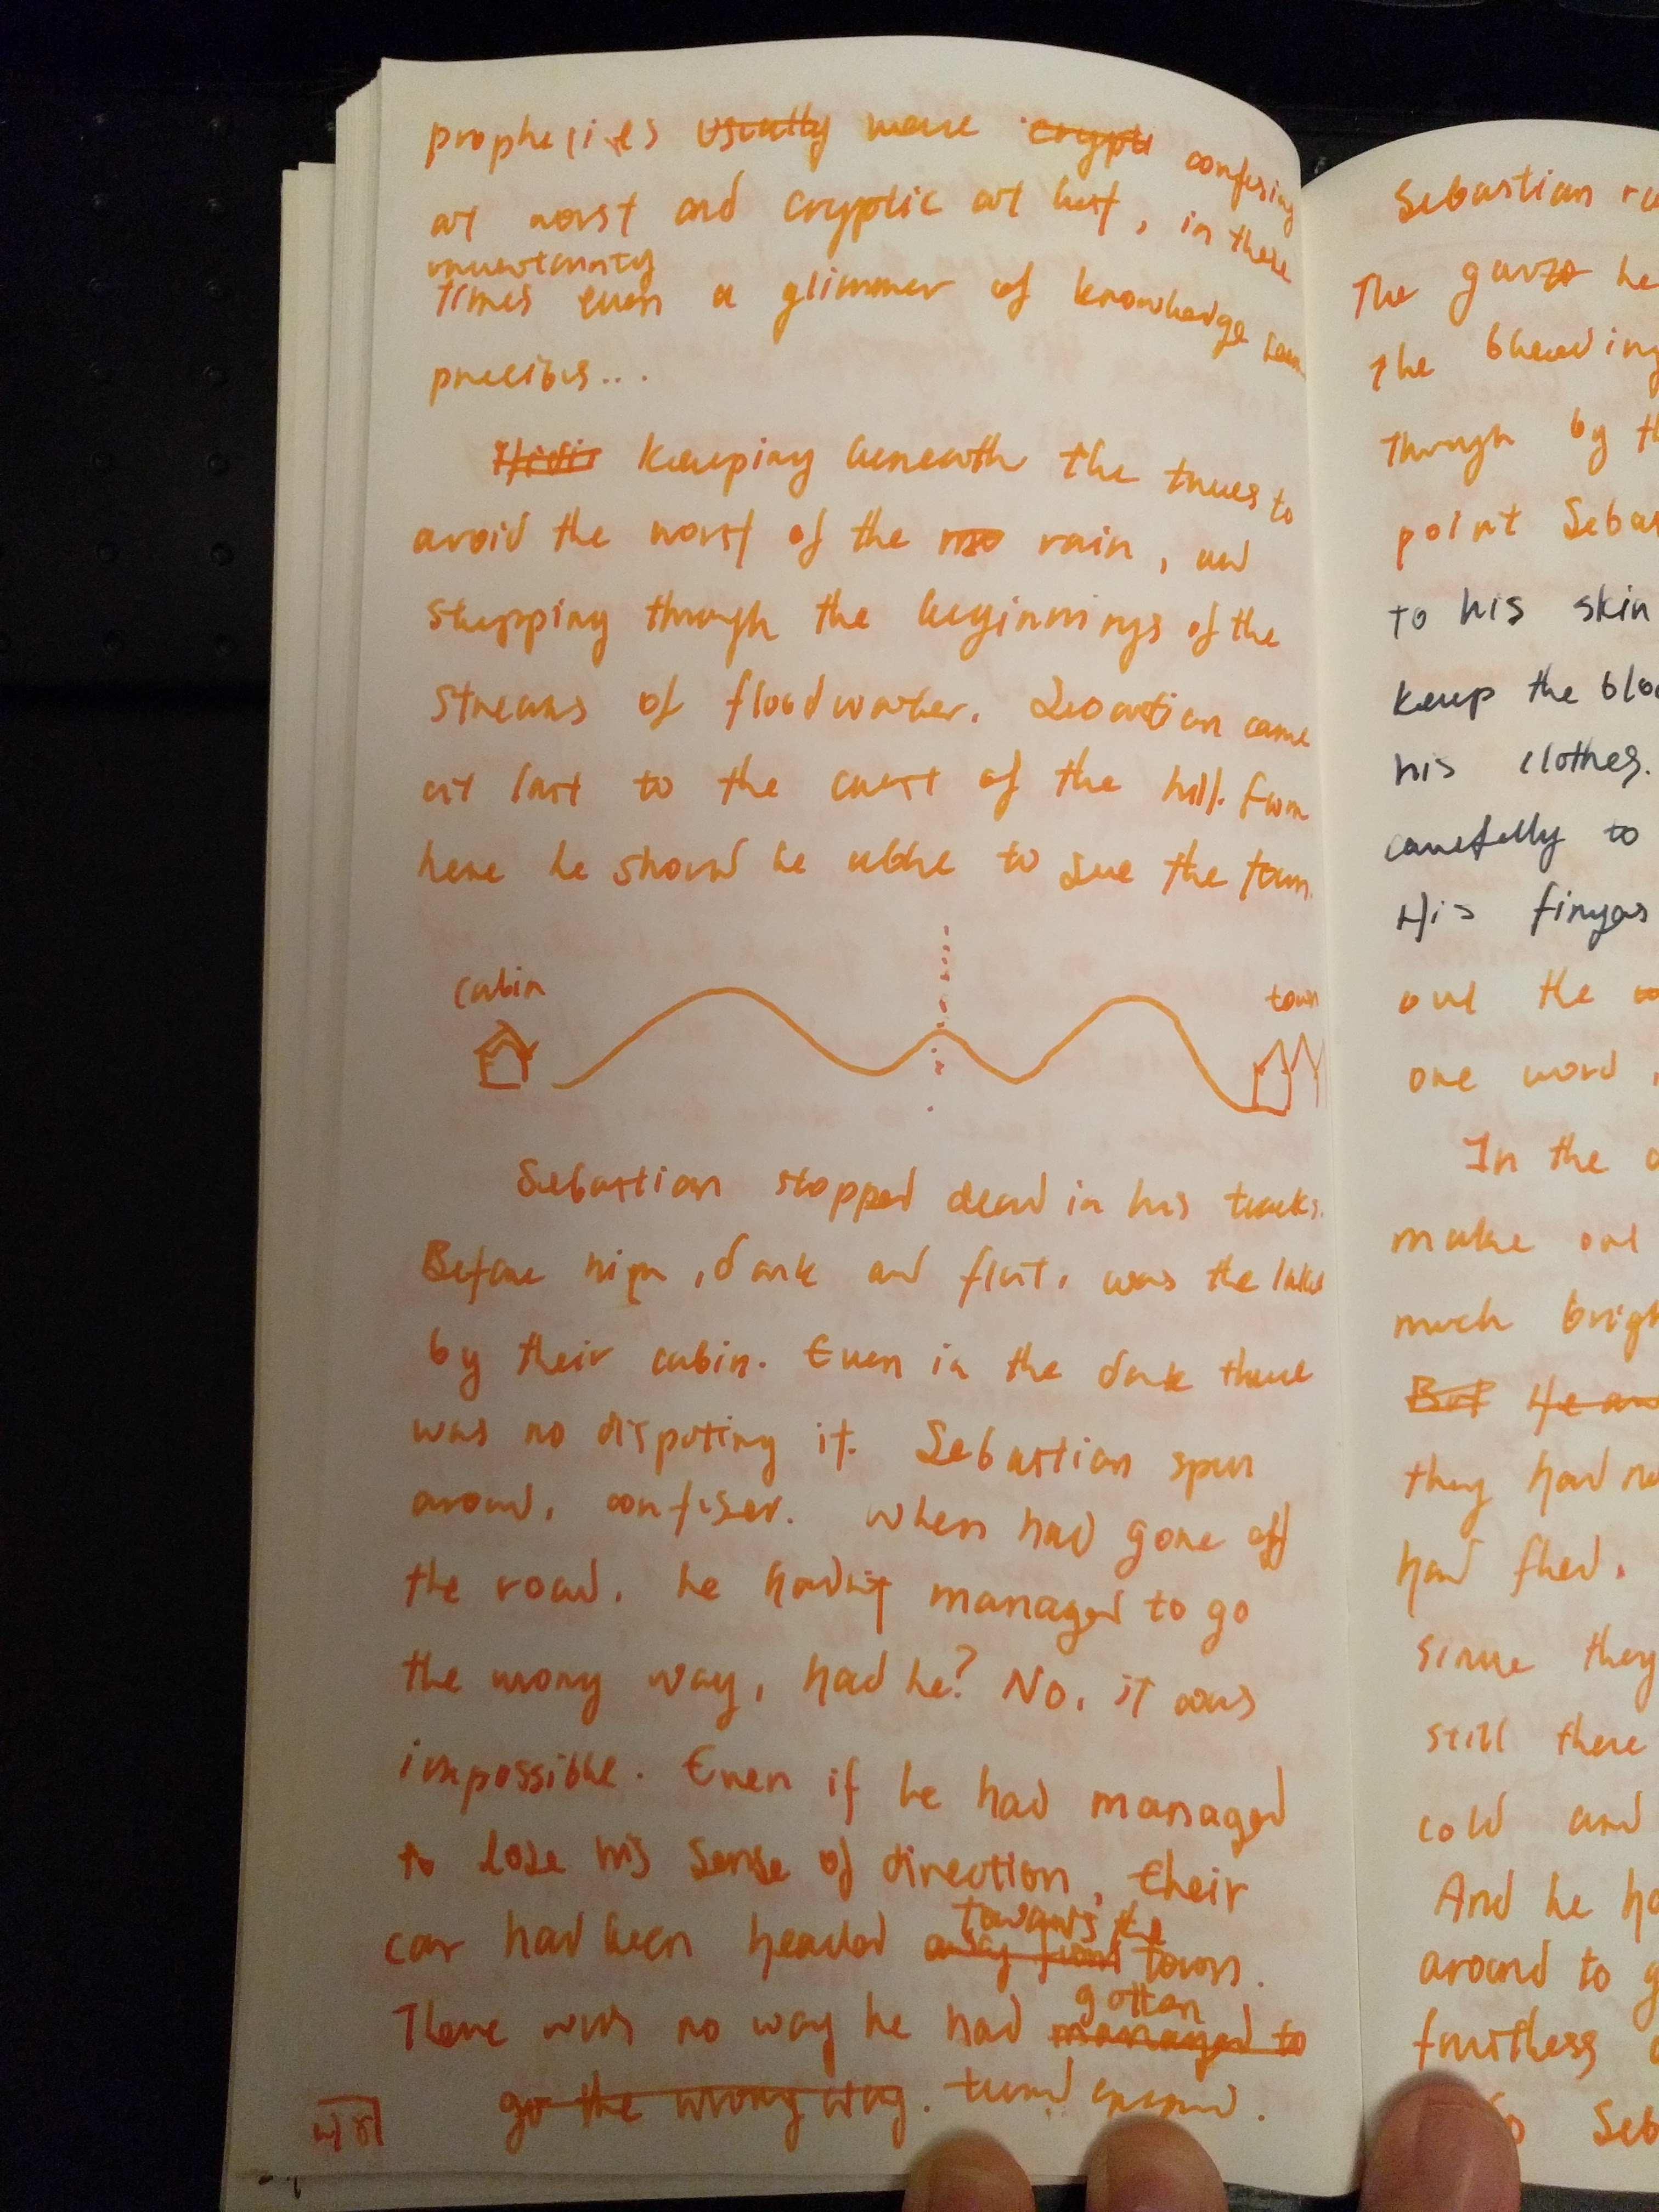 prophecies usually were crypti confusing
at worst and cryptic at best, in these
uncertainty
times even a glimmer of knowledge
precious...
Keeping beneath the trees to
avoid the worst of the rain, and
stepping through the beginnings of the
streams of floodwater. Sebastian came
at last to the crest of the hill. From
here he should be able to see the town.
cabin
town
Sebastian stopped dead in his tracks.
Before him, dark and flat, was the lake
by their cabin. Even in the dark there
was no disputing it. Sebastian spun
around, confused. When had gone off
the road, he hadn't managed to go
the wrong way, had he? No, it was
impossible. Even if he had managed
to lose his sense of direction, their
towards the
car had been headed away from town.
gotten
There was no way he had managed to
go the wrong way. turned around.
Sebastian
The gauze he
the bleeding
through by th
point Sebas
to his skin
keep the bloo
his clothes.
carefully to
His fingers
out the
one word,
In the
make out
much brigh
But He
they had no
had fled.
since they
still there
cold and
And he ha
around to g
fruitless
Seb